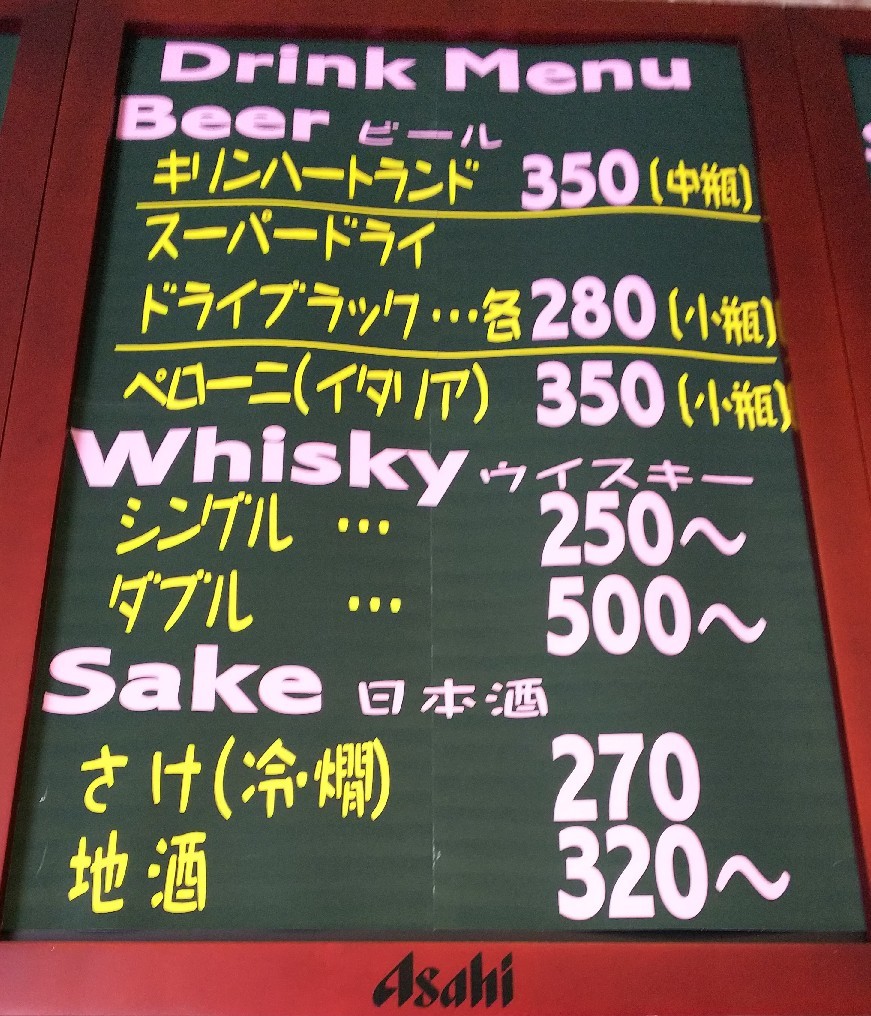 Drink Menu
Beer ビール
キリンハートランド 350(中瓶)
スーパードライ
ドライブラック…各280(小瓶)
ペローニ(イタリア) 350(小瓶)
Whisky ウイスキー
シングル … 250〜
ダブル … 500〜
Sake 日本酒
さけ(冷・燗) 270
地酒 320〜
Asahi